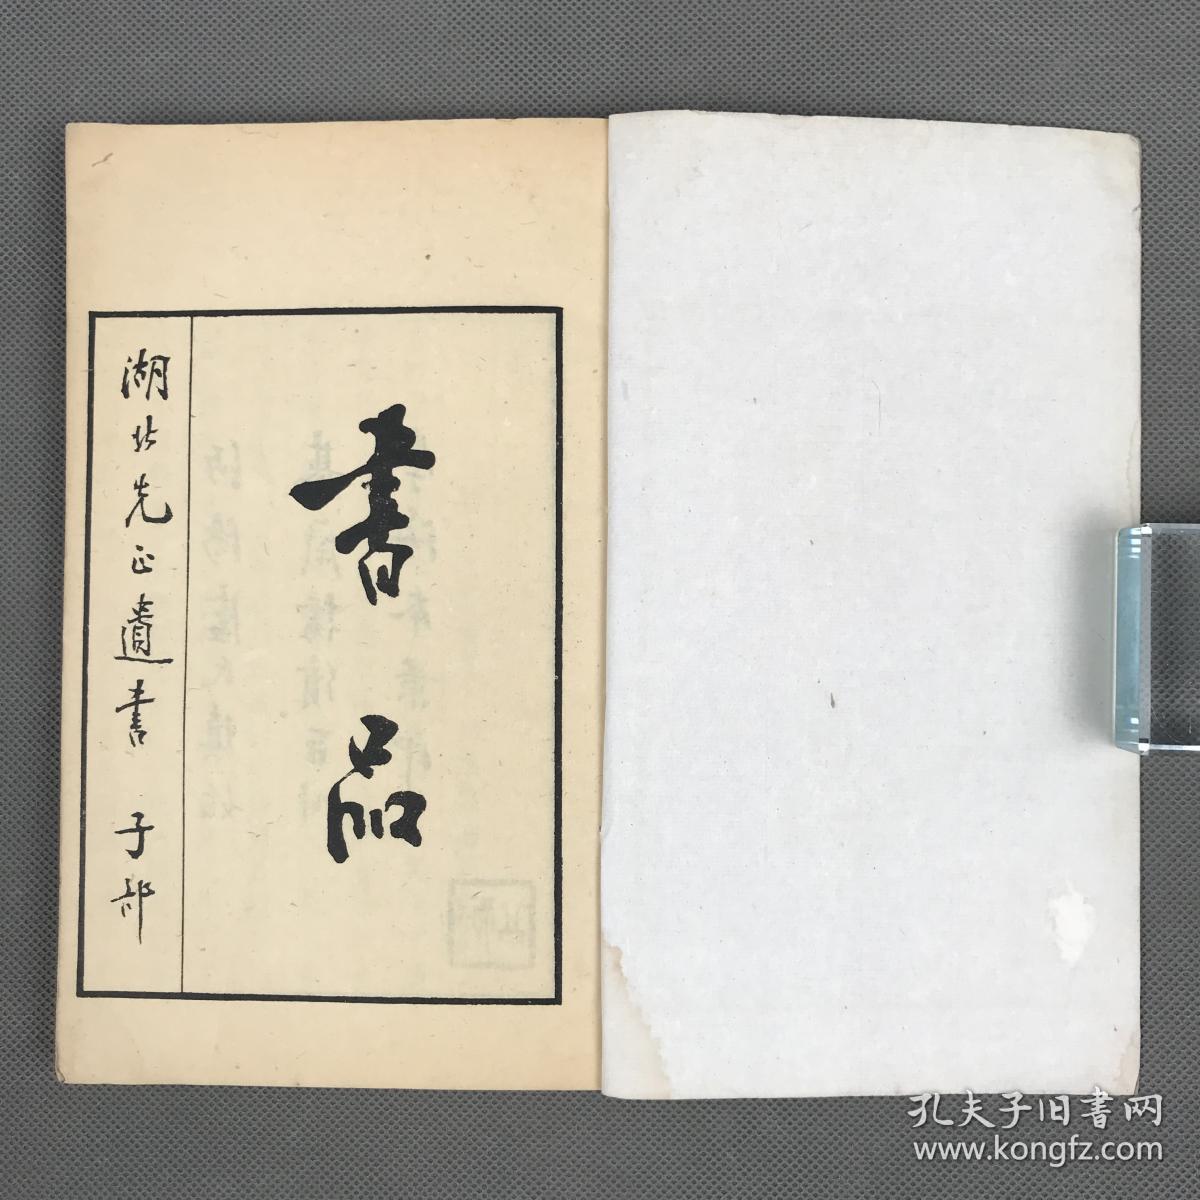 書品
湖北先正遺書 子部
孔夫子旧書网
www.kongfz.com